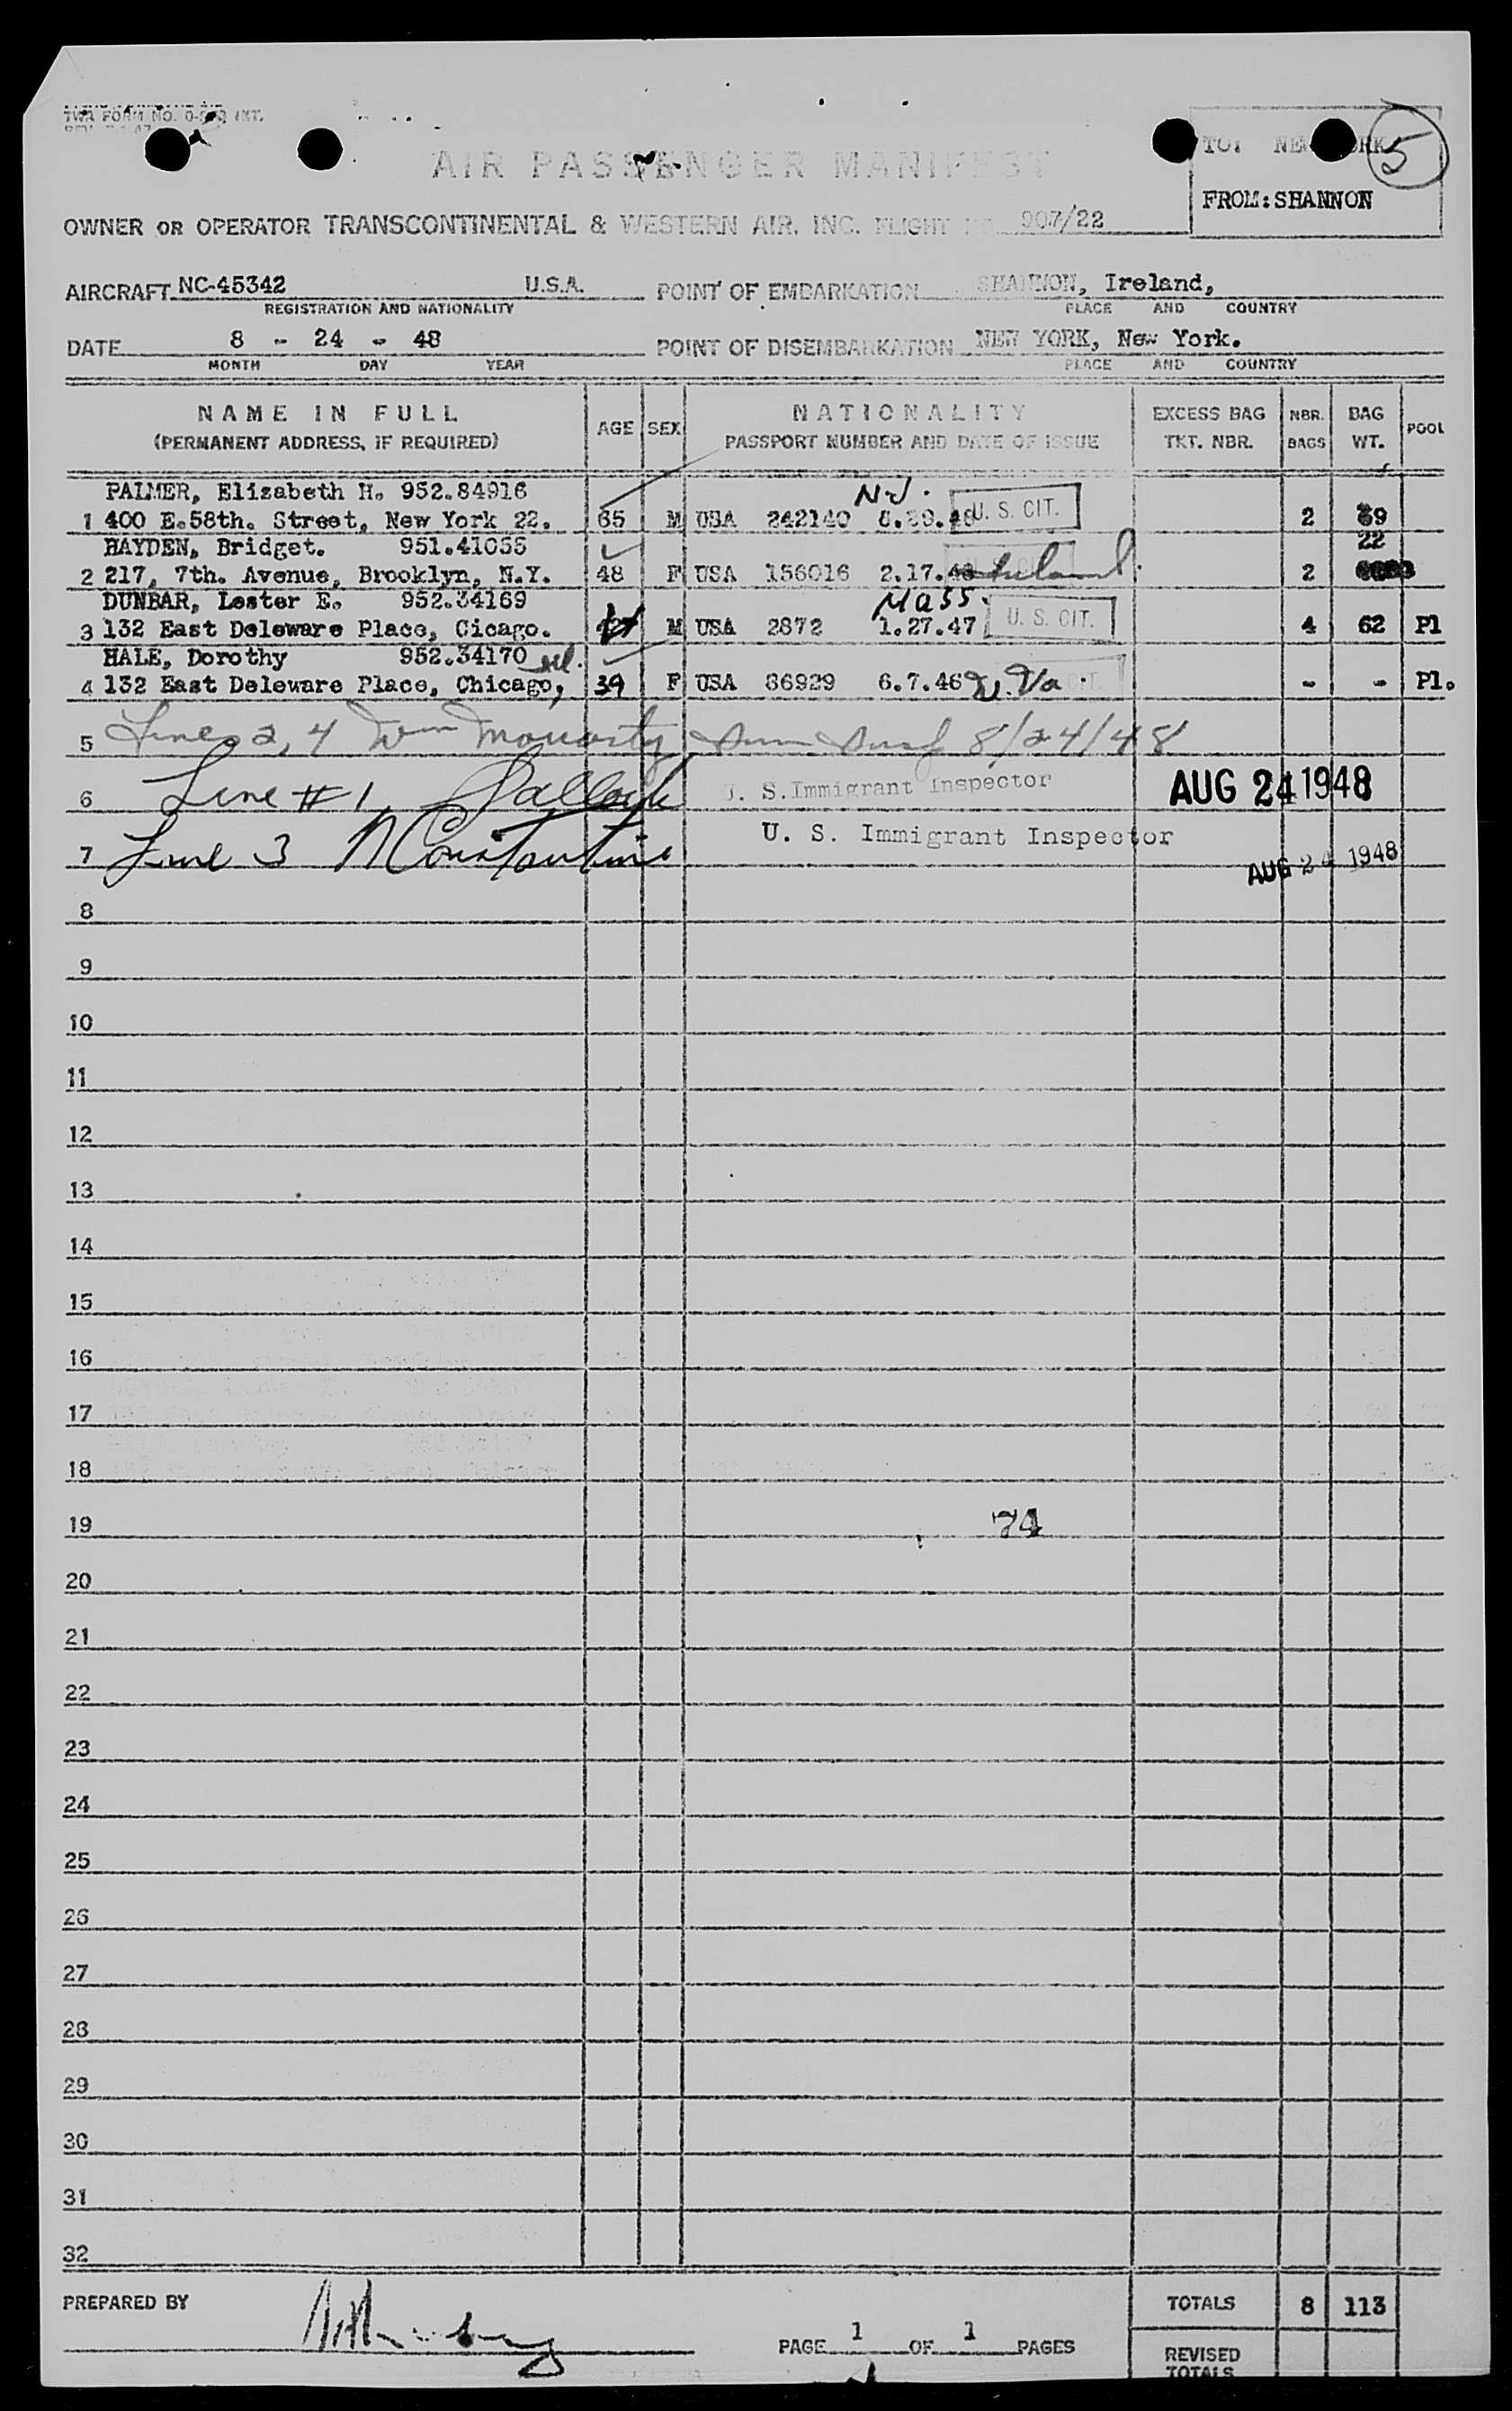 TWA FORM NO.
AIR PASSENGER MANIFEST
TO: NEW YORK
5
FROM: SHANNON
OWNER OR OPERATOR TRANSCONTINENTAL & WESTERN AIR, INC. FLIGHT NO. 907/22
AIRCRAFT NC-45342 U.S.A. POINT OF EMBARKATION SHANNON, Ireland,
REGISTRATION AND NATIONALITY PLACE AND COUNTRY
DATE 8 - 24 - 48 POINT OF DISEMBARKATION NEW YORK, New York.
MONTH DAY YEAR PLACE AND COUNTRY
NAME IN FULL AGE SEX NATIONALITY EXCESS BAG NBR. BAG POOL
(PERMANENT ADDRESS, IF REQUIRED) PASSPORT NUMBER AND DATE OF ISSUE TKT. NBR. BAGS WT.
PALMER, Elizabeth H. 952.84916 N.J.
1 400 E.58th. Street, New York 22. 65 M USA 242140 U. S. CIT. 2 69
HAYDEN, Bridget. 951.41055 22
2 217, 7th. Avenue, Brooklyn, N.Y. 48 F USA 156016 2.17. Ireland. 2
DUNBAR, Lester E. 952.34169 Mass.
3 132 East Deleware Place, Cicago. M USA 2872 1.27.47 U. S. CIT. 4 62 Pl
HALE, Dorothy 952.34170
4 132 East Deleware Place, Chicago, 39 F USA 86929 6.7.46 W. Va. - - Pl.
5 Lines 2, 4 Wm Moriarty Imm Insp 8/24/48
6 Line #1, U. S. Immigrant Inspector AUG 24 1948
7 Line 3 N Constantine U. S. Immigrant Inspector
AUG 24 1948
8
9
10
11
12
13
14
15
16
17
18
19 74
20
21
22
23
24
25
26
27
28
29
30
31
32
PREPARED BY TOTALS 8 113
PAGE 1 OF 1 PAGES
REVISED
TOTALS